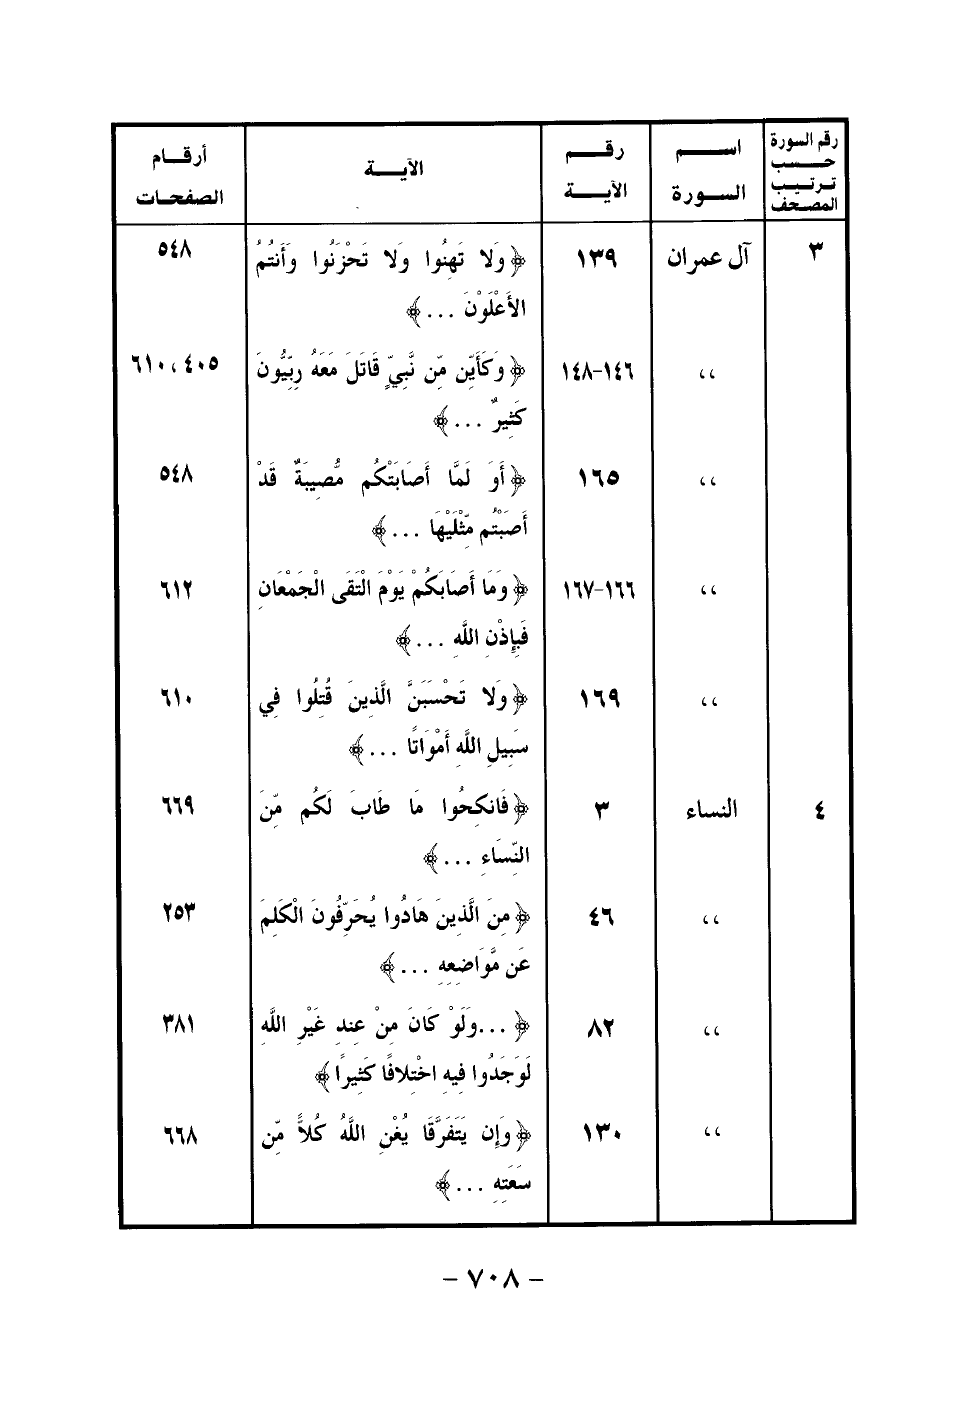 رقم السورة حسب ترتيب المصحف | اسم السورة | رقم الآية | الآية | أرقام الصفحات
٣ | آل عمران | ١٣٩ | ﴿وَلا تَهِنُوا وَلا تَحْزَنُوا وَأَنتُمُ | ٥٤٨
الأَعْلَوْنَ ...﴾
،، | ١٤٦-١٤٨ | ﴿وَكَأَيِّن مِّن نَّبِيٍّ قَاتَلَ مَعَهُ رِبِّيُّونَ | ٤٠٥، ٦١٠
كَثِيرٌ ...﴾
،، | ١٦٥ | ﴿أَوَ لَمَّا أَصَابَتْكُم مُّصِيبَةٌ قَدْ | ٥٤٨
أَصَبْتُم مِّثْلَيْهَا ...﴾
،، | ١٦٦-١٦٧ | ﴿وَمَا أَصَابَكُمْ يَوْمَ الْتَقَى الْجَمْعَانِ | ٦١٢
فَبِإِذْنِ اللَّهِ ...﴾
،، | ١٦٩ | ﴿وَلا تَحْسَبَنَّ الَّذِينَ قُتِلُوا فِي | ٦١٠
سَبِيلِ اللَّهِ أَمْوَاتًا ...﴾
٤ | النساء | ٣ | ﴿فَانكِحُوا مَا طَابَ لَكُم مِّنَ | ٦٦٩
النِّسَاءِ ...﴾
،، | ٤٦ | ﴿مِنَ الَّذِينَ هَادُوا يُحَرِّفُونَ الْكَلِمَ | ٢٥٣
عَن مَّوَاضِعِهِ ...﴾
،، | ٨٢ | ﴿...وَلَوْ كَانَ مِنْ عِندِ غَيْرِ اللَّهِ | ٣٨١
لَوَجَدُوا فِيهِ اخْتِلافًا كَثِيراً﴾
،، | ١٣٠ | ﴿وَإِن يَتَفَرَّقَا يُغْنِ اللَّهُ كُلاًّ مِّن | ٦٦٨
سَعَتِهِ ...﴾
– ٧٠٨ –